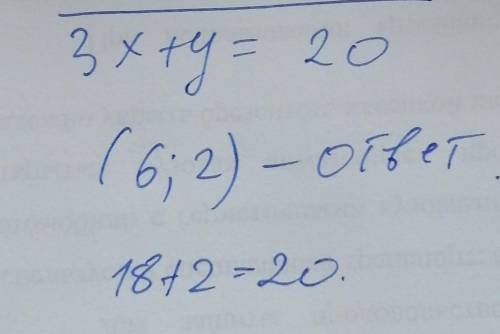 3x+y= 20
(6;2) - ответ.
18+2=20.